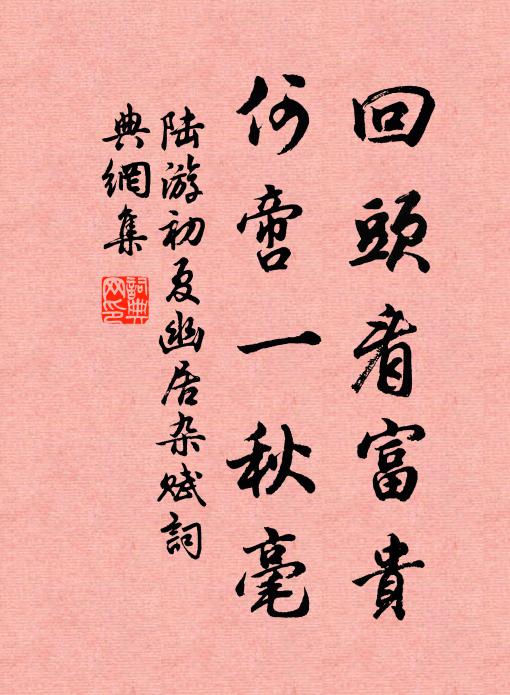 回頭看富貴
何啻一秋毫
陆游初夏幽居杂赋詞
典網集
詞典网印